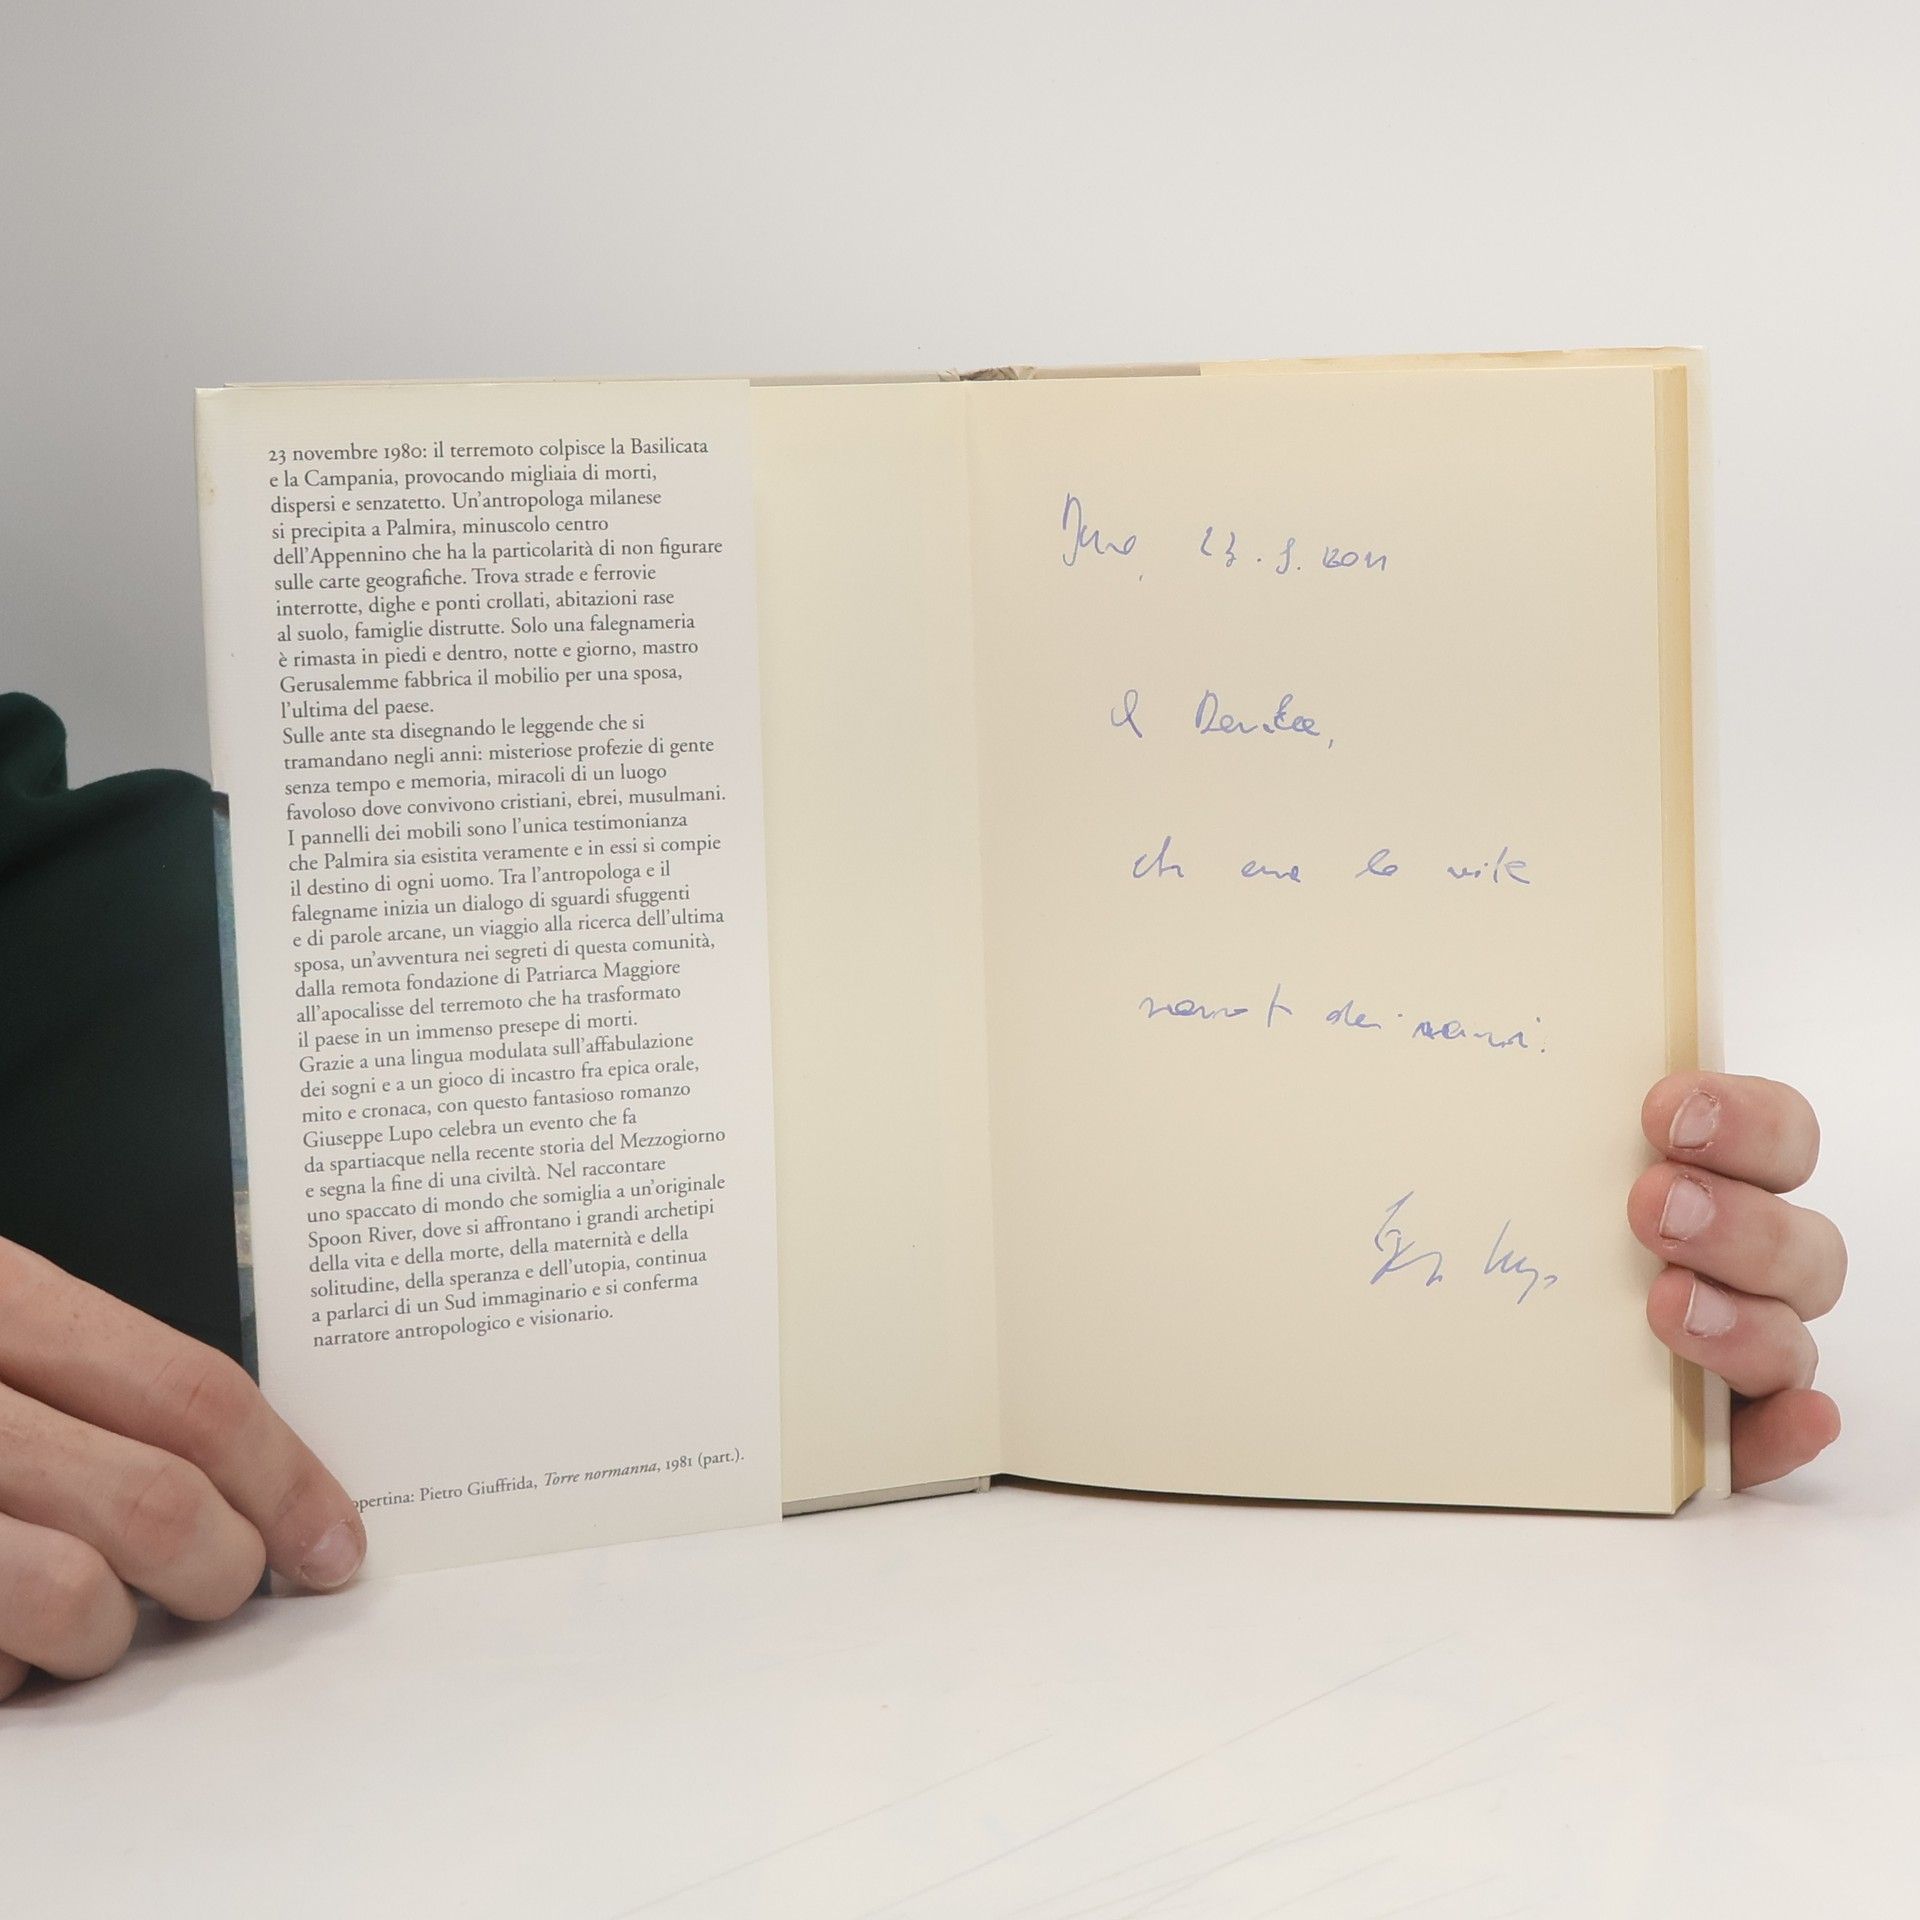 23 novembre 1980: il terremoto colpisce la Basilicata
e la Campania, provocando migliaia di morti,
dispersi e senzatetto. Un'antropologa milanese
si precipita a Palmira, minuscolo centro
dell'Appennino che ha la particolarità di non figurare
sulle carte geografiche. Trova strade e ferrovie
interrotte, dighe e ponti crollati, abitazioni rase
al suolo, famiglie distrutte. Solo una falegnameria
è rimasta in piedi e dentro, notte e giorno, mastro
Gerusalemme fabbrica il mobilio per una sposa,
l'ultima del paese.
Sulle ante sta disegnando le leggende che si
tramandano negli anni: misteriose profezie di gente
senza tempo e memoria, miracoli di un luogo
favoloso dove convivono cristiani, ebrei, musulmani.
I pannelli dei mobili sono l'unica testimonianza
che Palmira sia esistita veramente e in essi si compie
il destino di ogni uomo. Tra l'antropologa e il
falegname inizia un dialogo di sguardi sfuggenti
e di parole arcane, un viaggio alla ricerca dell'ultima
sposa, un'avventura nei segreti di questa comunità,
dalla remota fondazione di Patriarca Maggiore
all'apocalisse del terremoto che ha trasformato
il paese in un immenso presepe di morti.
Grazie a una lingua modulata sull'affabulazione
dei sogni e a un gioco di incastro fra epica orale,
mito e cronaca, con questo fantasioso romanzo
Giuseppe Lupo celebra un evento che fa
da spartiacque nella recente storia del Mezzogiorno
e segna la fine di una civiltà. Nel raccontare
uno spaccato di mondo che somiglia a un'originale
Spoon River, dove si affrontano i grandi archetipi
della vita e della morte, della maternità e della
solitudine, della speranza e dell'utopia, continua
a parlarci di un Sud immaginario e si conferma
narratore antropologico e visionario.
opertina: Pietro Giuffrida, Torre normanna, 1981 (part.).
2011
la vita
Lupo